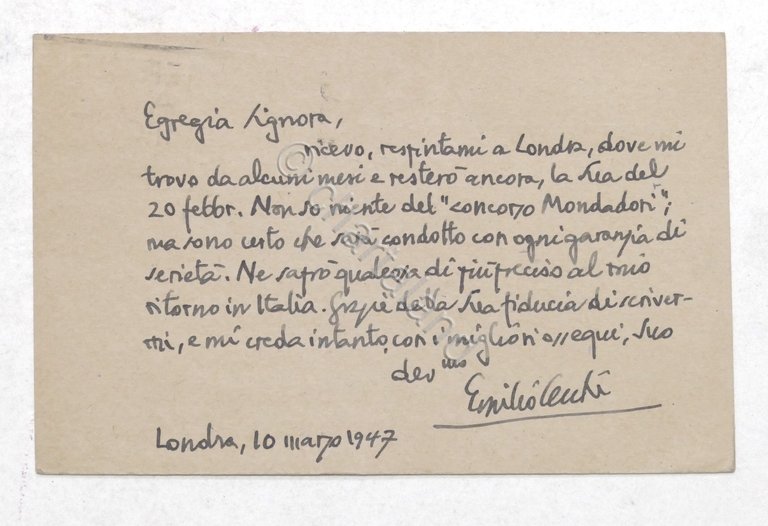 Egregia Signora,
ricevo, respintami a Londra, dove mi
trovo da alcuni mesi e resterò ancora, la Sua del
20 febbr. Non so niente del "concorso Mondadori";
ma sono certo che sarà condotto con ogni garanzia di
serietà. Ne saprò qualcosa di più preciso al mio
ritorno in Italia. Grazie della Sua fiducia di scriver-
mi, e mi creda intanto, con i migliori ossequi, Suo
dev.mo
Emilio Cecchi
Londra, 10 marzo 1947
© chartaland